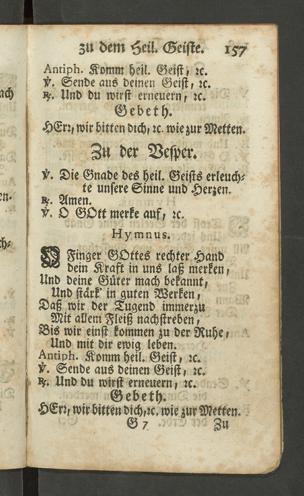 zu dem Heil. Geiste. 157
Antiph. Komm heil. Geist, ꝛc.
℣. Sende aus deinen Geist, ꝛc.
℟. Und du wirst erneuern, ꝛc.
Gebeth.
HErr, wir bitten dich, ꝛc. wie zur Metten.
Zu der Vesper.
℣. Die Gnade des heil. Geists erleuch-
te unsere Sinne und Herzen.
℟. Amen.
℣. O GOtt merke auf, ꝛc.
Hymnus.
O Finger GOttes rechter Hand
dein Kraft in uns laß merken,
Und deine Güter mach bekannt,
Und stärk in guten Werken,
Daß wir der Tugend immerzu
Mit allem Fleiß nachstreben,
Bis wir einst kommen zu der Ruhe,
Und mit dir ewig leben.
Antiph. Komm heil. Geist, ꝛc.
℣. Sende aus deinen Geist, ꝛc.
℟. Und du wirst erneuern, ꝛc.
Gebeth.
HErr, wir bitten dich, ꝛc. wie zur Metten.
G 7 Zu
ach
en.
ch-